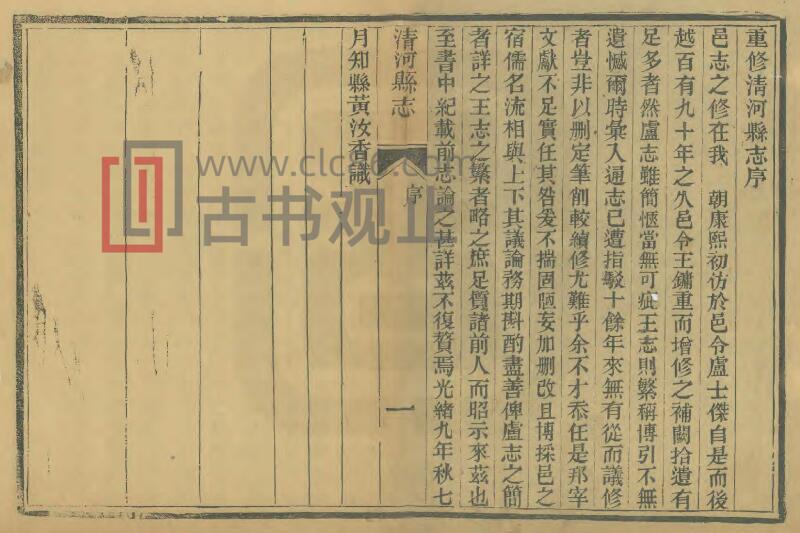 重修淸河縣志序
邑志之修在我　朝康熙初仿於邑令盧士傑自是而後
越百有九十年之久邑令王鏞重而增修之補闕拾遺有
足多者然盧志雖簡愜當無可疵王志則繁稱博引不無
遺憾爾時彙入通志已遭指駁十餘年來無有從而議修
者豈非以删定筆削較續修尤難乎余不才忝任是邦宰
文獻不足實任其咎爰不揣固陋妄加删改且博採邑之
宿儒名流相與上下其議論務期斟酌盡善俾盧志之簡
者詳之王志之繁者略之庶足質諸前人而昭示來茲也
至書中紀載前志論之甚詳茲不復贅焉光緒九年秋七
清河縣志
序
一
月知縣黃汝香識
www.clc96.com
古书观止